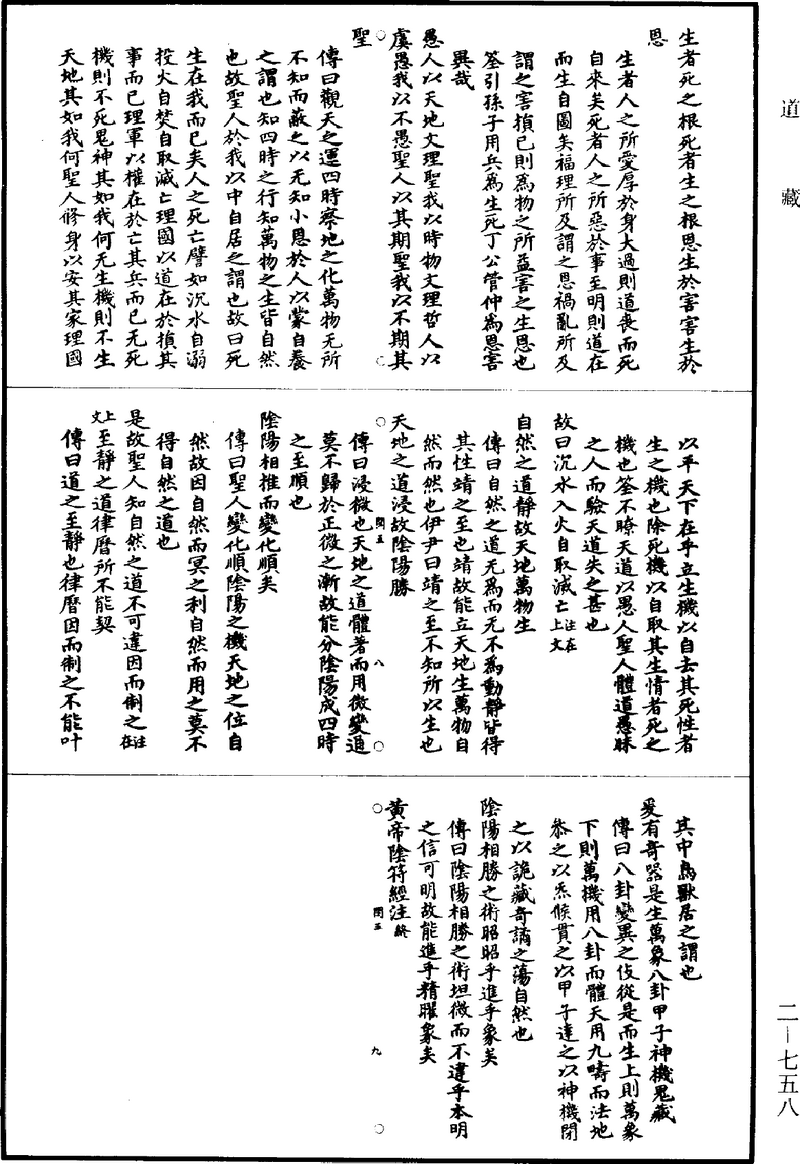 道藏
生者死之根死者生之根恩生於害害生於
恩
生者人之所愛厚於身大過則道喪而死
自來矣死者人之所惡於事至明則道在
而生自圖矣福理所及謂之恩禍亂所及
謂之害損已則為物之所益害之生恩也
筌引孫子用兵為生死丁公管仲為恩害
異哉
愚人以天地文理聖我以時物文理哲人以
虞愚我以不愚聖人以其期聖我以不期其
聖
傳曰觀天之運四時察地之化萬物无所
不知而蔽之以无知小恩於人以蒙自養
之謂也知四時之行知萬物之生皆自然
也故聖人於我以中自居之謂也故曰死
生在我而已矣人之死亡譬如沉水自溺
投火自焚自取滅亡理國以道在於損其
事而已理軍以權在於亡其兵而已无死
機則不死鬼神其如我何无生機則不生
天地其如我何聖人脩身以安其家理國
以平天下在乎立生機以自去其死性者
生之機也除死機以自取其生情者死之
機也筌不瞭天道以愚人聖人體道愚昧
之人而驗天道失之甚也
故曰沉水入火自取滅亡注在上文
自然之道靜故天地萬物生
傳曰自然之道无為而无不為動靜皆得
其性靖之至也靖故能立天地生萬物自
然而然也伊尹曰靖之至不知所以生也
天地之道浸故陰陽勝
閏五 八
傳曰浸微也天地之道體著而用微變通
莫不歸於正微之漸故能分陰陽成四時
之至順也
陰陽相推而變化順矣
傳曰聖人變化順陰陽之機天地之位自
然故因自然而冥之利自然而用之莫不
得自然之道也
是故聖人知自然之道不可違因而制之注在
上文至靜之道律曆所不能契
傳曰道之至靜也律曆因而制之不能叶
其中鳥獸居之謂也
爰有奇器是生萬象八卦甲子神機鬼藏
傳曰八卦變異之伎從是而生上則萬象
下則萬機用八卦而體天用九疇而法地
恭之以炁候貫之以甲子達之以神機閉
之以詭藏奇譎之蕩自然也
陰陽相勝之術昭昭乎進乎象矣
傳曰陰陽相勝之術坦微而不違乎本明
之信可明故能進乎精曜象矣
黃帝陰符經注終
閏五 九
二－七五八